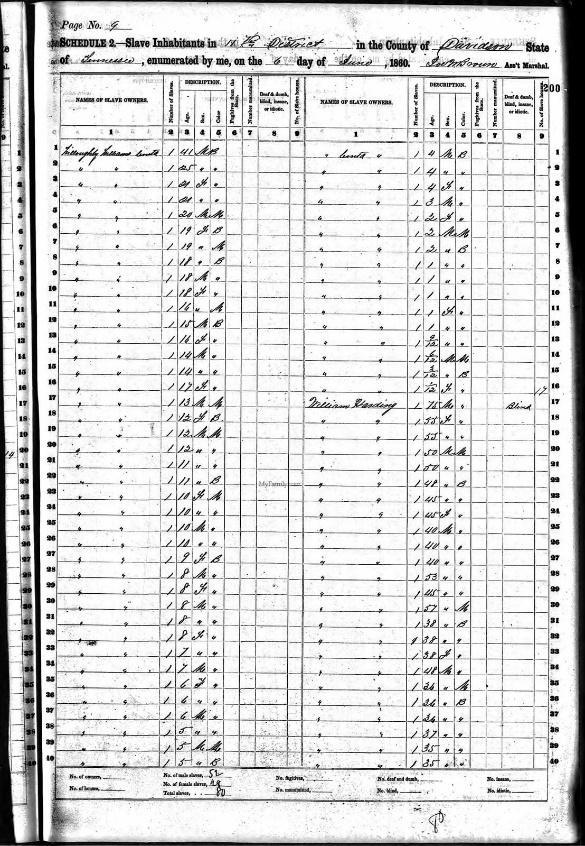 Page No. 9
SCHEDULE 2.—Slave Inhabitants in District in the County of Davidson State
of Tennessee, enumerated by me, on the 6 day of June, 1860. Ass't Marshal.
200
NAMES OF SLAVE OWNERS. Number of Slaves. DESCRIPTION. Age. Sex. Color. Fugitives from the State. Number manumitted. Deaf & dumb, blind, insane, or idiotic. No. of Slave houses. NAMES OF SLAVE OWNERS. Number of Slaves. DESCRIPTION. Age. Sex. Color. Fugitives from the State. Number manumitted. Deaf & dumb, blind, insane, or idiotic. No. of Slave houses.
1 2 3 4 5 6 7 8 9 1 2 3 4 5 6 7 8 9
1 Willoughby Williams 1 41 M B " " 1 4 M B 1
2 " " 1 25 " " " " 1 4 " " 2
3 " " 1 F " " " 1 4 F " 3
4 " " 1 " " " " 1 3 M " 4
5 " " 1 20 M M " " 1 2 F " 5
6 " " 1 19 F B " " 1 2 M M 6
7 " " 1 19 " M " " 1 2 " B 7
8 " " 1 18 " B " " 1 1 " " 8
9 " " 1 18 M " " " 1 1 " " 9
10 " " 1 18 F " " " 1 1 " " 10
11 " " 1 " M " " 1 1 F " 11
12 " " 1 15 M B " " 1 1 " " 12
13 " " 1 16 F " " " 1 /12 " " 13
14 " " 1 14 M " " " 1 /12 M M 14
15 " " 1 14 " " " " 1 /12 " B 15
16 " " 1 17 F " " " 1 /12 F " 17 16
17 " " 1 13 M M William Harding 1 75 M " Blind 17
18 " " 1 12 F B " " 1 55 F " 18
19 " " 1 12 M M " " 1 55 " " 19
20 " " 1 12 " " " " 1 50 M M 20
21 " " 1 11 " " " " 1 50 " " 21
22 " " 1 11 " B " " 1 48 " B 22
MyFamily.com
23 " " 1 10 F M " " 1 45 " " 23
24 " " 1 10 " " " " 1 45 F " 24
25 " " 1 10 M " " " 1 40 M " 25
26 " " 1 10 " " " " 1 40 " " 26
27 " " 1 9 F B " " 1 40 " " 27
28 " " 1 8 M " " " 1 53 " " 28
29 " " 1 8 F " " " 1 45 " " 29
30 " " 1 8 M " " " 1 57 " M 30
31 " " 1 8 " " " " 1 38 " B 31
32 " " 1 8 F " " " 38 " " 32
33 " " 1 7 " " " " 1 38 F " 33
34 " " 1 7 M " " " 1 48 M " 34
35 " " 1 6 F " " " 1 " M 35
36 " " 1 6 " " " " 1 " B 36
37 " " 1 6 M " " " 1 " " 37
38 " " 1 5 " " " " 1 37 " " 38
39 " " 1 5 M M " " 1 35 " " 39
40 " " 1 5 " B " " 1 35 " " 40
No. of owners, No. of male slaves, 52 No. fugitives, No. deaf and dumb, No. insane,
No. of houses, No. of female slaves, 28 No. manumitted, No. blind, No. idiotic,
Total slaves, 80
80